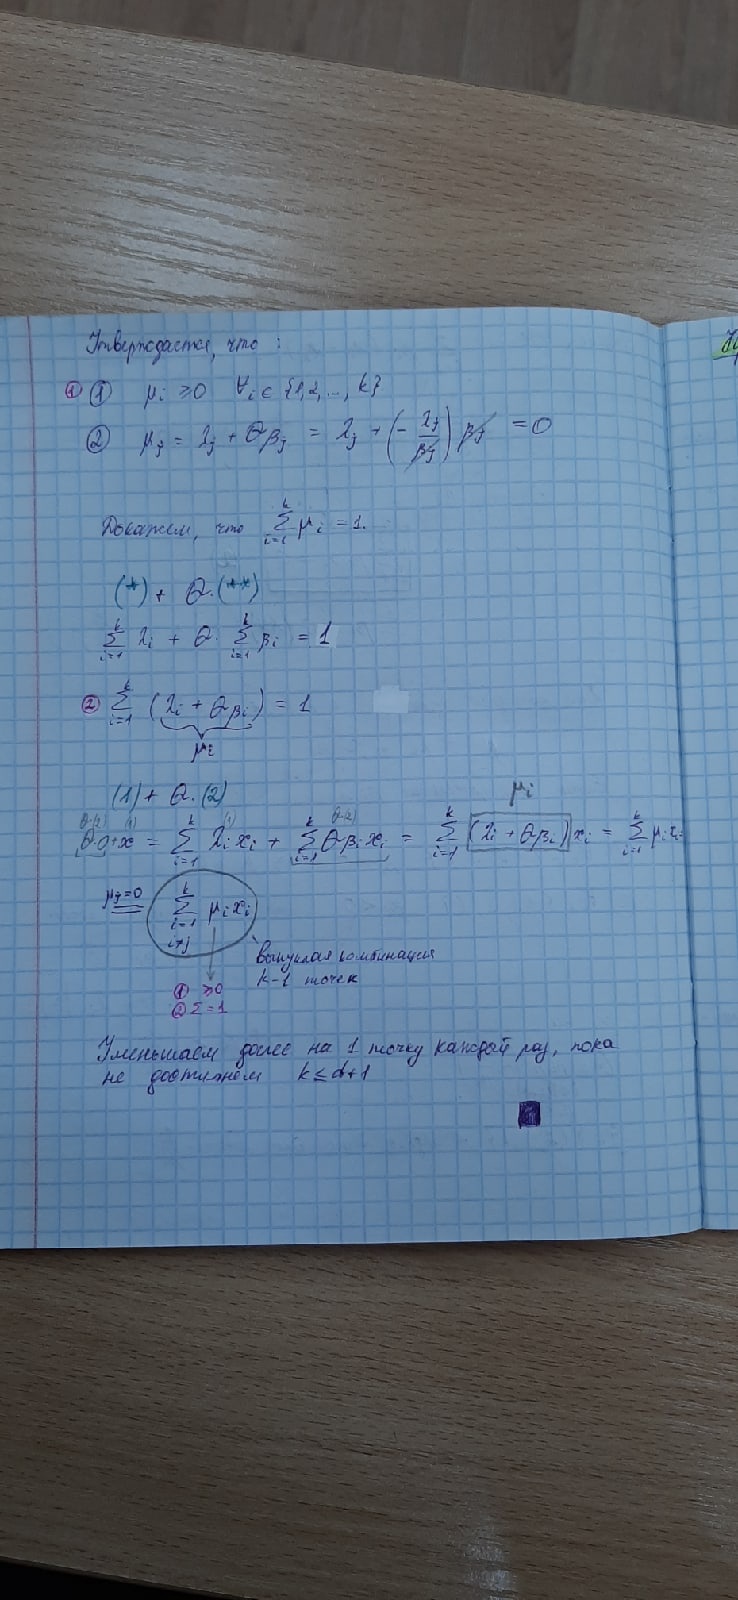 Утверждается, что :
① ① μi ≥ 0 ∀i ∈ {1,2,...,k}
② μj = λj + θβj = λj + (- λj/βj) βj = 0
Докажем, что ∑_{i=1}^{k} μi = 1.
(*) + θ·(**)
∑_{i=1}^{k} λi + θ· ∑_{i=1}^{k} βi = 1
② ∑_{i=1}^{k} (λi + θβi) = 1
μi
(1) + θ·(2)
μi
θ·(2) (1) (1) θ·(2)
θ·0+x = ∑_{i=1}^{k} λi xi + ∑_{i=1}^{k} θβi xi = ∑_{i=1}^{k} (λi + θβi) xi = ∑_{i=1}^{k} μi xi
μj=0 ∑_{i=1, i≠j}^{k} μi xi
выпуклая комбинация
k-1 точек
① ≥0
② Σ=1
Уменьшаем далее на 1 точку каждый раз, пока
не достигнем k ≤ d+1